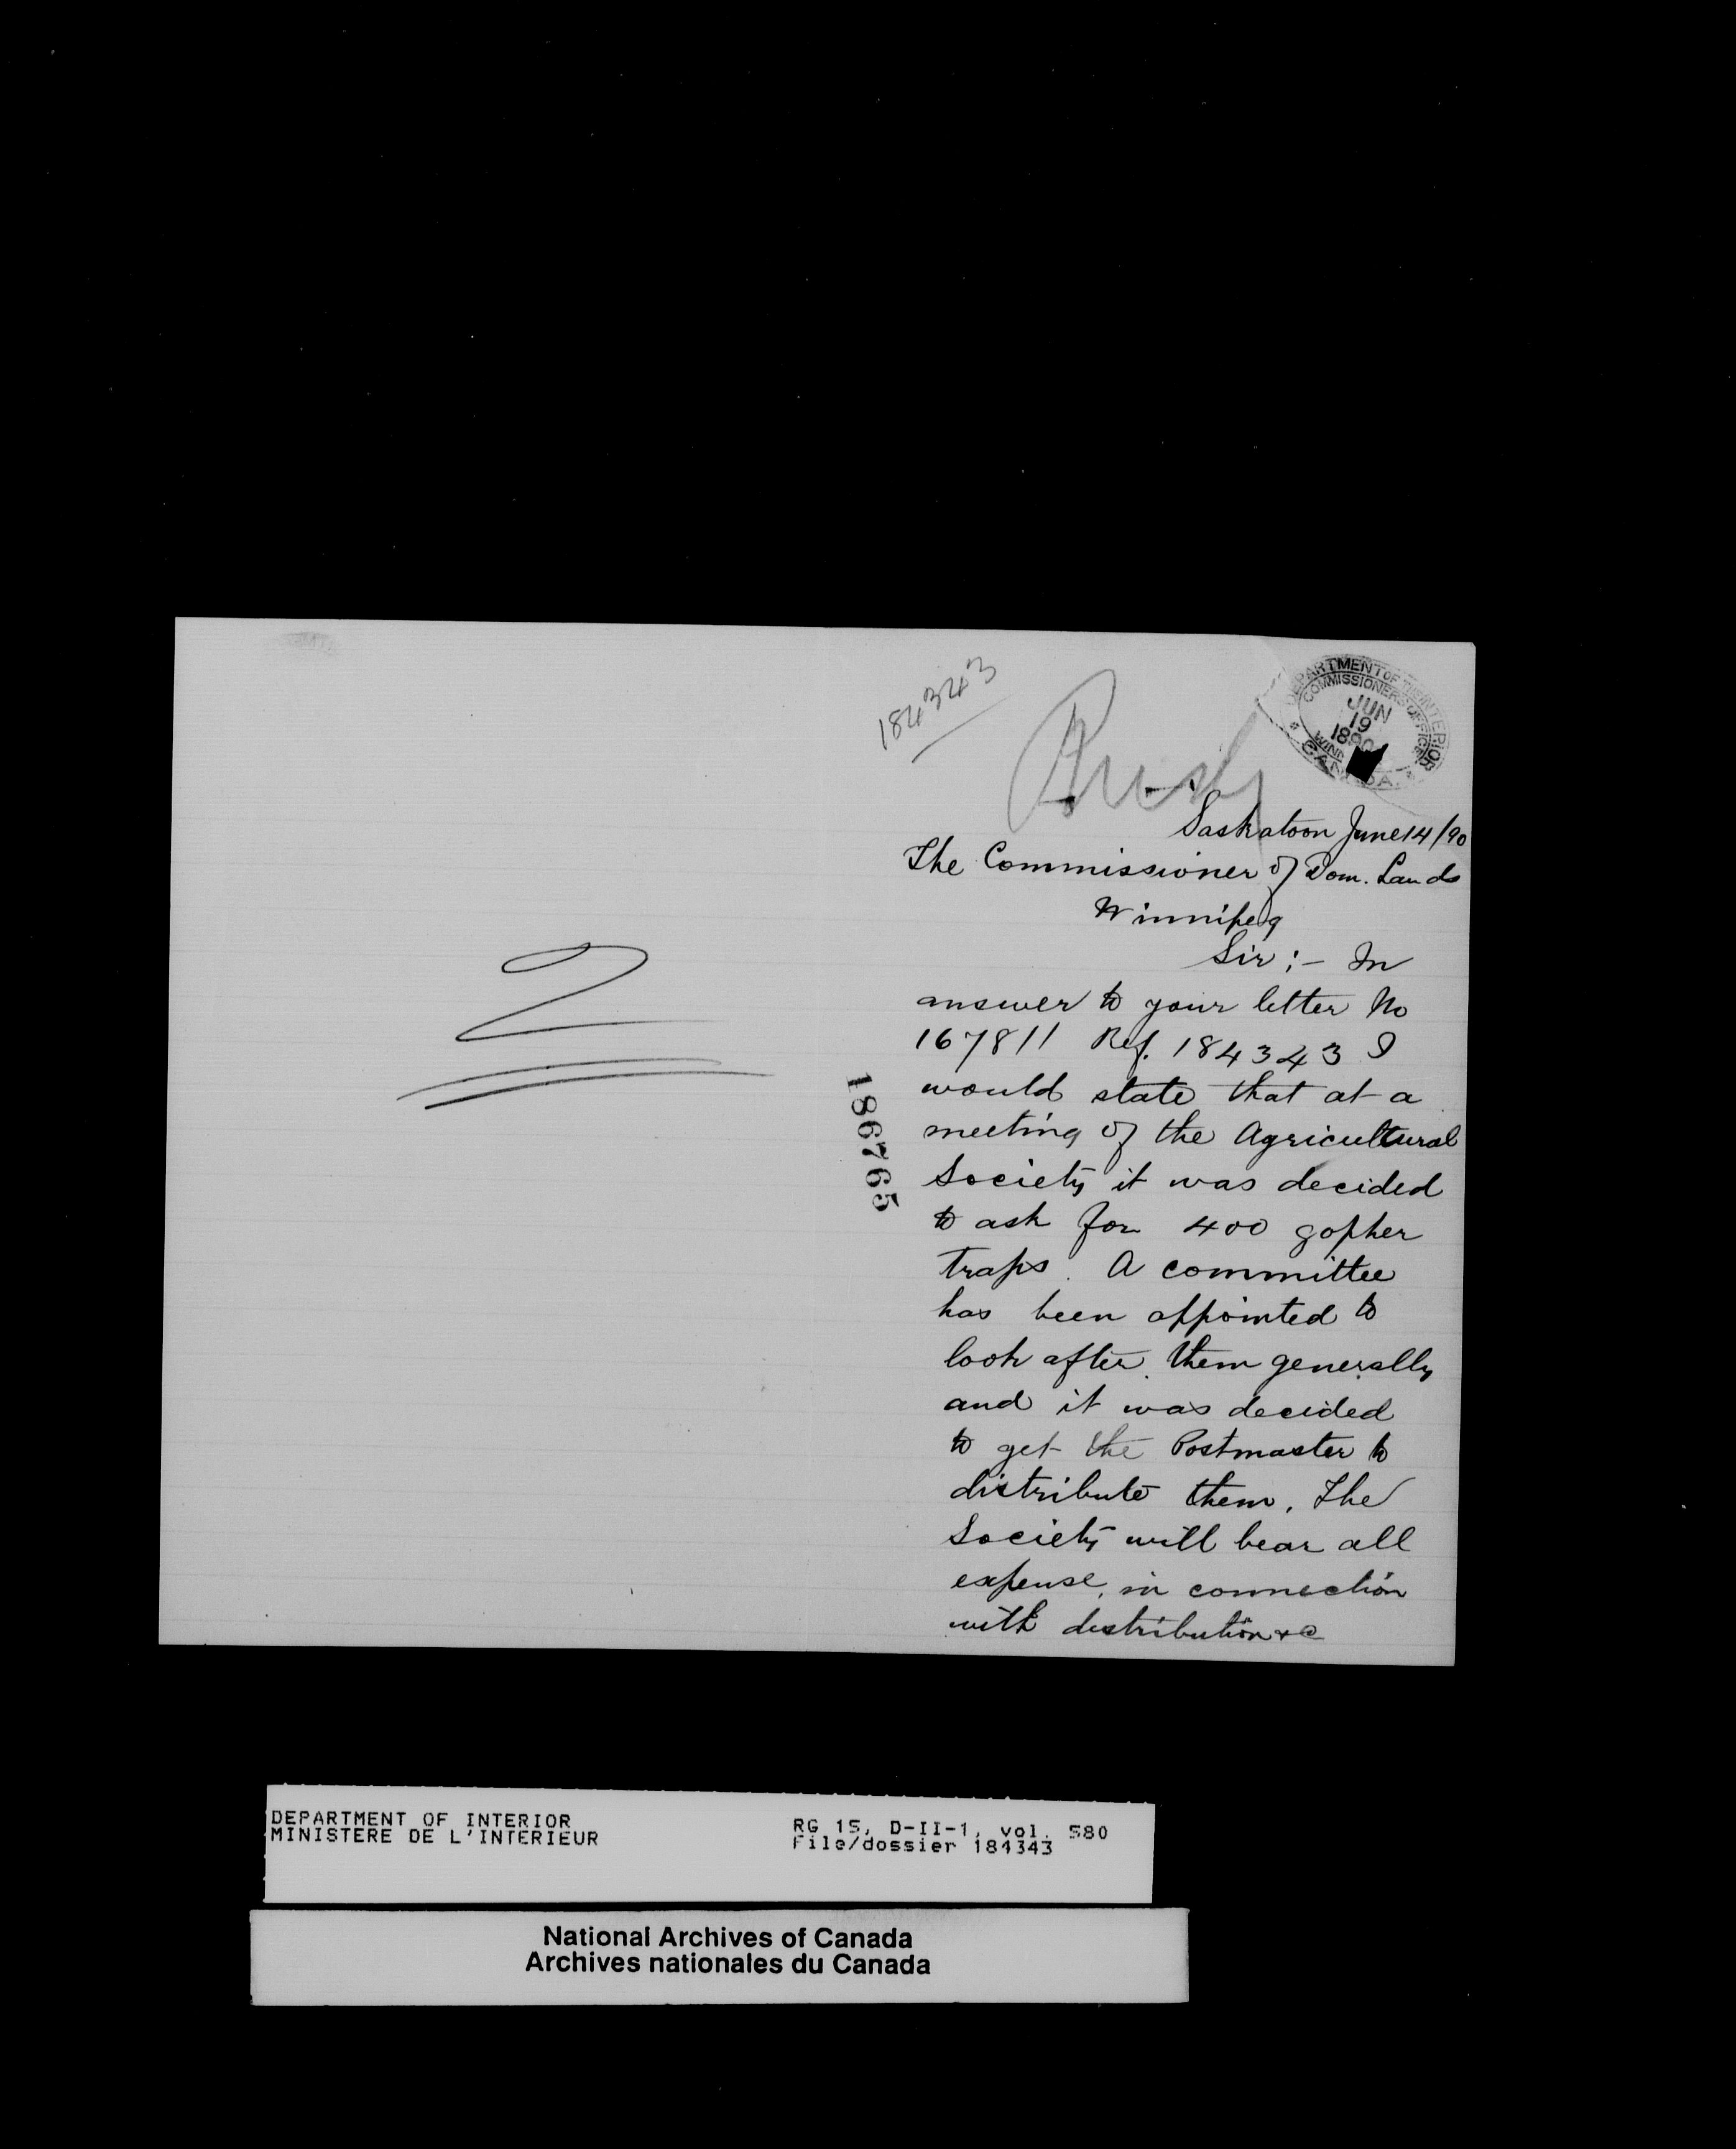 184343
DEPARTMENT OF THE INTERIOR
COMMISSIONERS OFFICE
JUN
19
1890
CANADA
Saskatoon June 14/90
The Commissioner of Dom. Lands
Winnipeg
Sir :- In
answer to your letter No
167811 Ref. 184343 I
would state that at a
meeting of the Agricultural
Society it was decided
to ask for 400 gopher
traps. A committee
has been appointed to
look after them generally
and it was decided
to get the Postmaster to
distribute them. The
Society will bear all
expense, in connection
with distribution &c
186765
2
DEPARTMENT OF INTERIOR
MINISTERE DE L'INTERIEUR
RG 15, D-II-1, vol. 580
File/dossier 184343
National Archives of Canada
Archives nationales du Canada